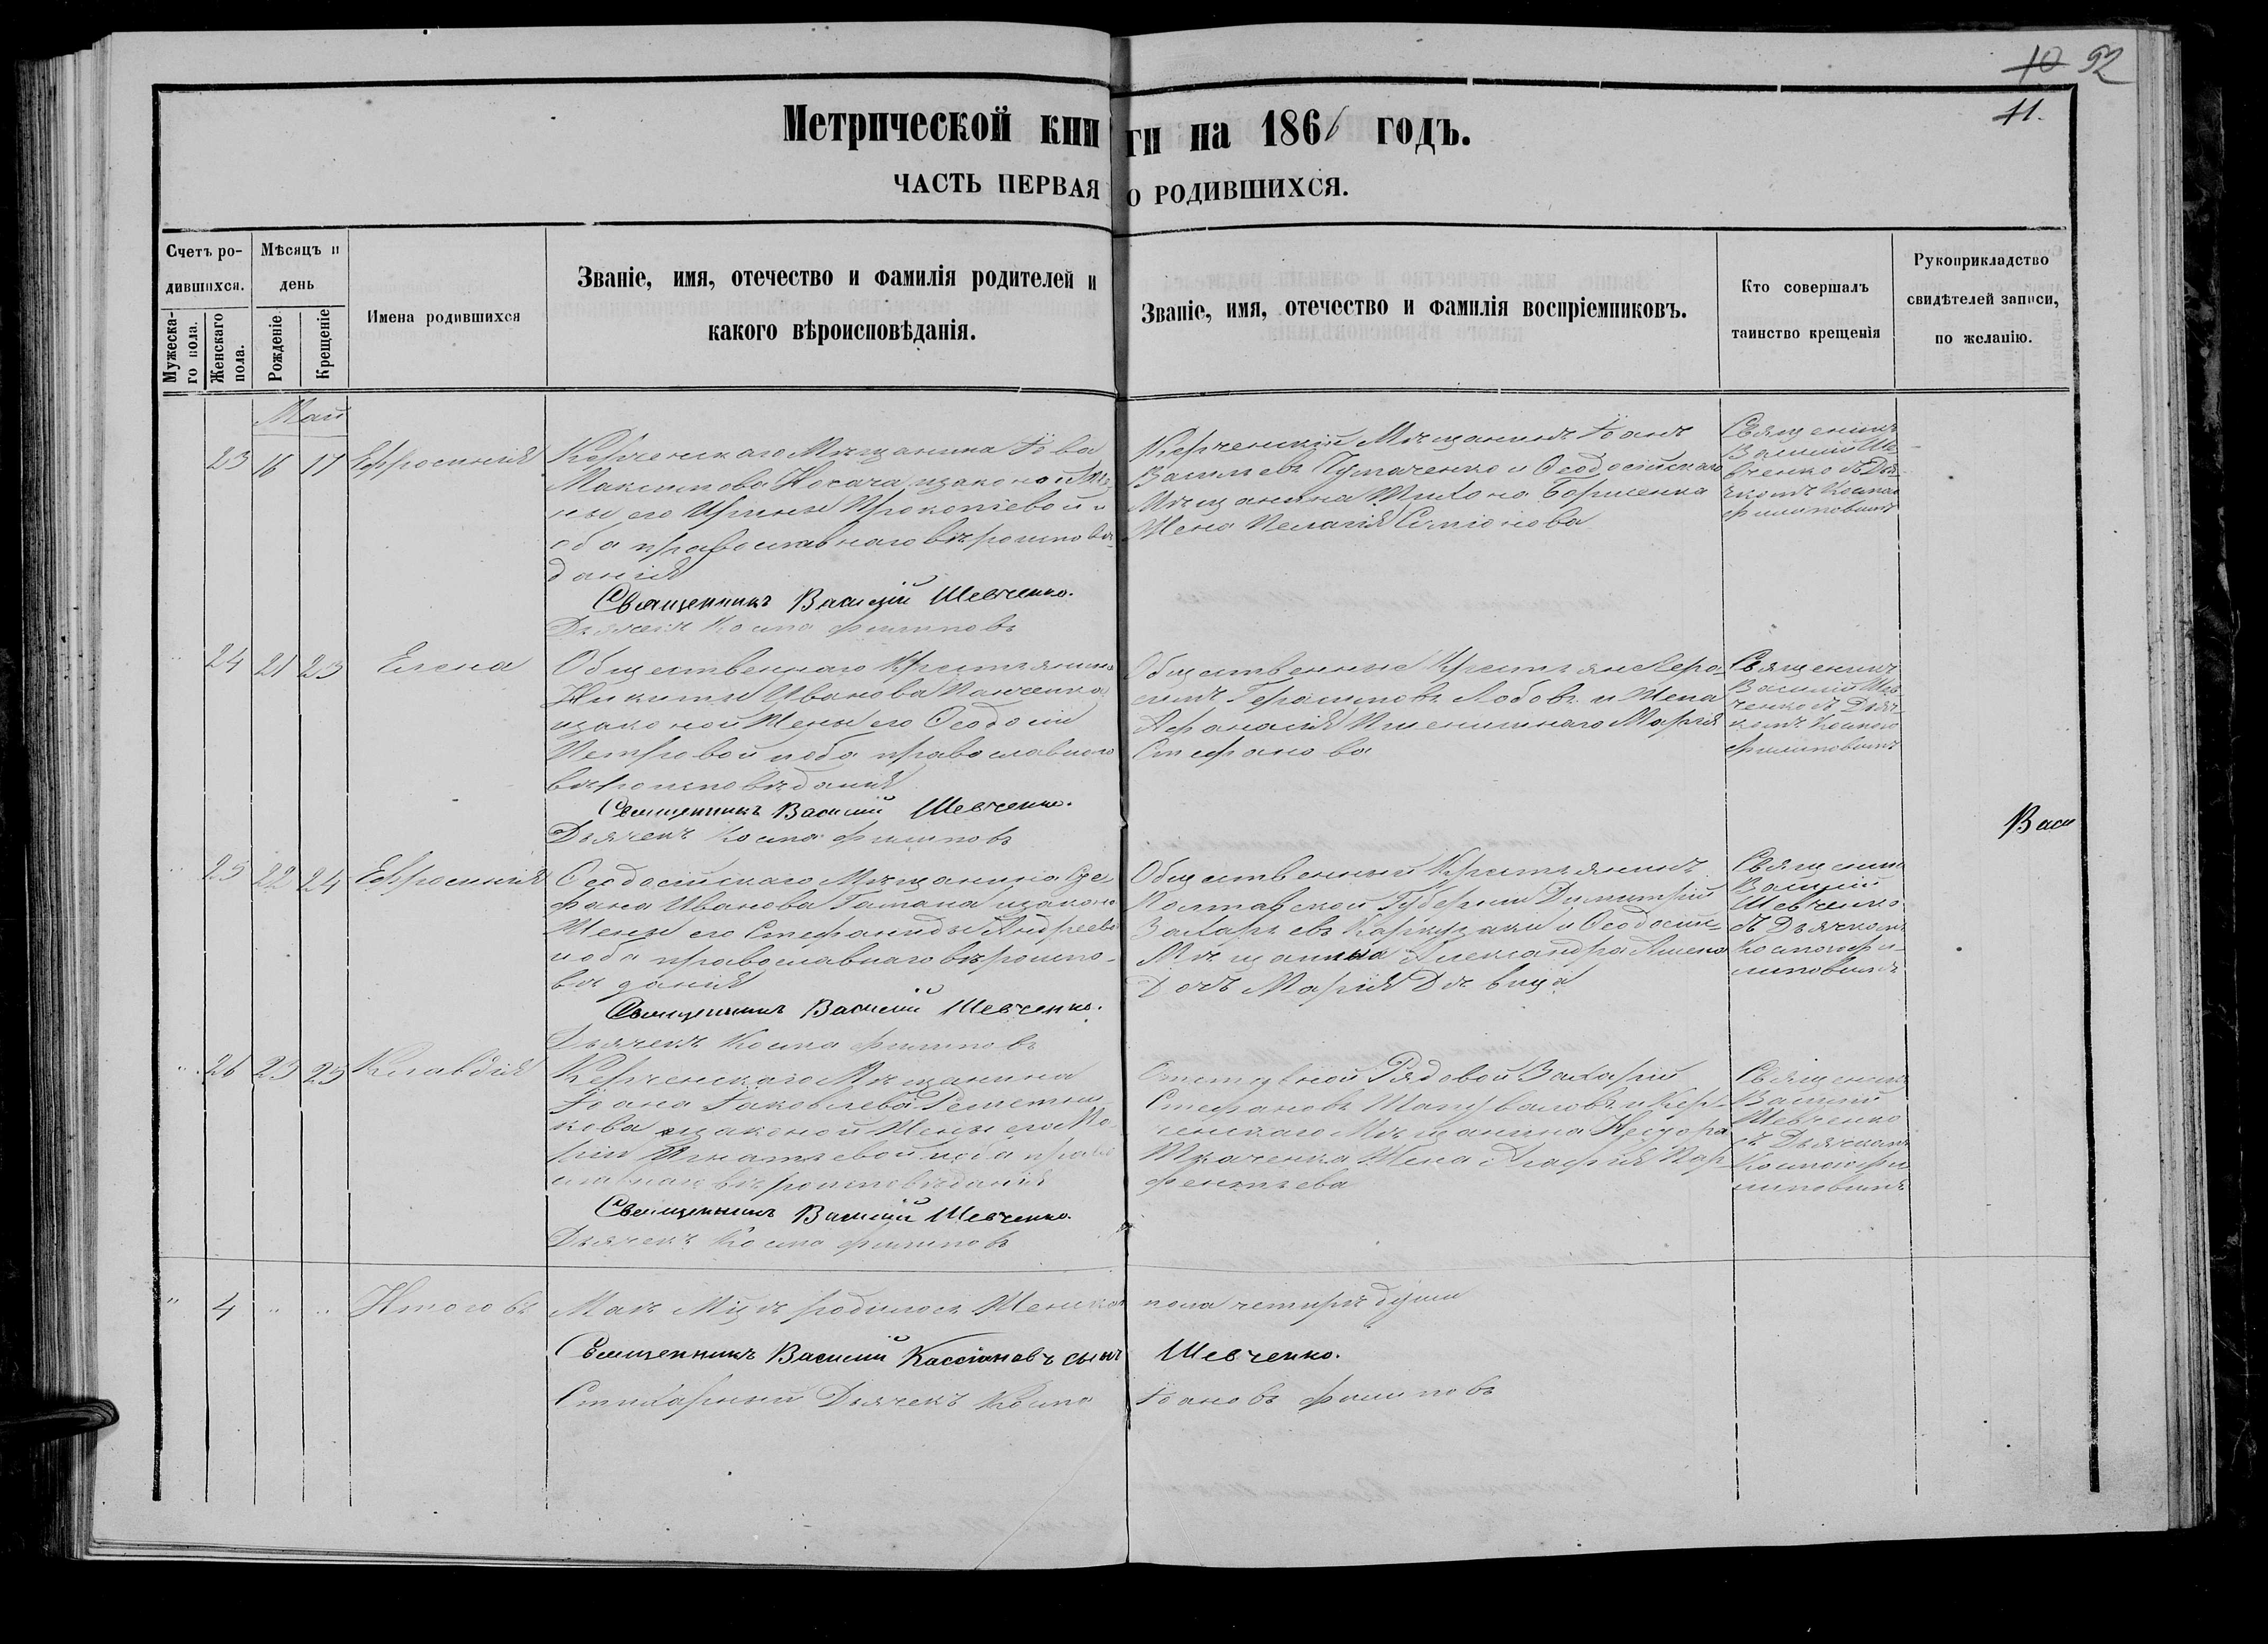 10 92
11.
Метрической книги на 1866 годъ.
ЧАСТЬ ПЕРВАЯ О РОДИВШИХСЯ.
Счетъ ро-
дившихся.
Мужеска-
го пола.
Женскаго
пола.
Мѣсяцъ и
день
Рожденіе
Крещеніе
Имена родившихся
Званіе, имя, отечество и фамилія родителей и
какого вѣроисповѣданія.
Званіе, имя, отечество и фамилія воспріемниковъ.
Кто совершалъ
таинство крещенія
Рукоприкладство
свидѣтелей записи,
по желанію.
Май
23 16 17 Ефросинія
Керченскаго Мѣщанина Іова
Максимова Носача изаконой Же
ны его Ирины Прокопіевой и
оба православнаго вѣроисповѣ-
данія
Священникъ Василій Шевченко.
Дьячекъ Косма Филиповъ
Керченскій Мѣщанинъ Іоанъ
Васильевъ Чумаченко и Ѳеодосійскаго
Мѣщанина Тихона Борисенка
Жена Пелагія Симіонова
Священикъ
Василій Ше
вченко съ Дья
чкомъ Космою
Филиповымъ
24 21 23 Елена
Общественнаго Крестьянина
Никиты Иванова Панченка
изаконой Жены его Ѳеодосіи
Петровой иоба православнаго
вѣроисповѣданія
Священникъ Василій Шевченко.
Дьячекъ Косма Филиповъ
Общественные Крестьяне Гера-
симъ Герасимовъ Лобовъ и Жена
Афанасія Пшенишнаго Марія
Стефанова
Священикъ
Василій Шев
ченко съ Дьяч
комъ Космою
Филиповымъ
Васи
25 22 24 Ефросинія
Ѳеодосійскаго Мѣщанина Сте
фана Иванова Гамана изаконо
Жены его Стефаниды Андреево
иоба православнаго вѣроиспо-
вѣданія
Священникъ Василій Шевченко.
Дьячекъ Косма Филиповъ
Общественный Крестьянинъ
Полтавской Губерніи Димитрій
Захарьевъ и Ѳеодосійс-
Мѣщанина Александра
Дочъ Марія Дѣвица
Священик
Василій
Шевченко
съ Дьячкомъ
Космою Фи
липовымъ
26 23 25 Клавдія
Керченскаго Мѣщанина
Іоана Іаковлева Решетни
кова изаконой Жены его Ма
ріи Игнатьевой иоба право
славнаго вѣроисповѣданія
Священникъ Василій Шевченко.
Дьячекъ Косма Филиповъ
Отставной Рядовой Захарій
Стефановъ Шаповаловъ и Кер-
ченскаго Мѣщанина
Ткаченка Жена Агафія Пар
фентьева
Священикъ
Василій
Шевченко
съ Дьячкомъ
Космою Фи
липовымъ
" 4 " " Итого въ Маѣ Мцѣ родилось Женска пола четыре души
Священникъ Василій Кассіановъ сынъ Шевченко.
Стихарный Дьячекъ Косма Іоановъ Филиповъ